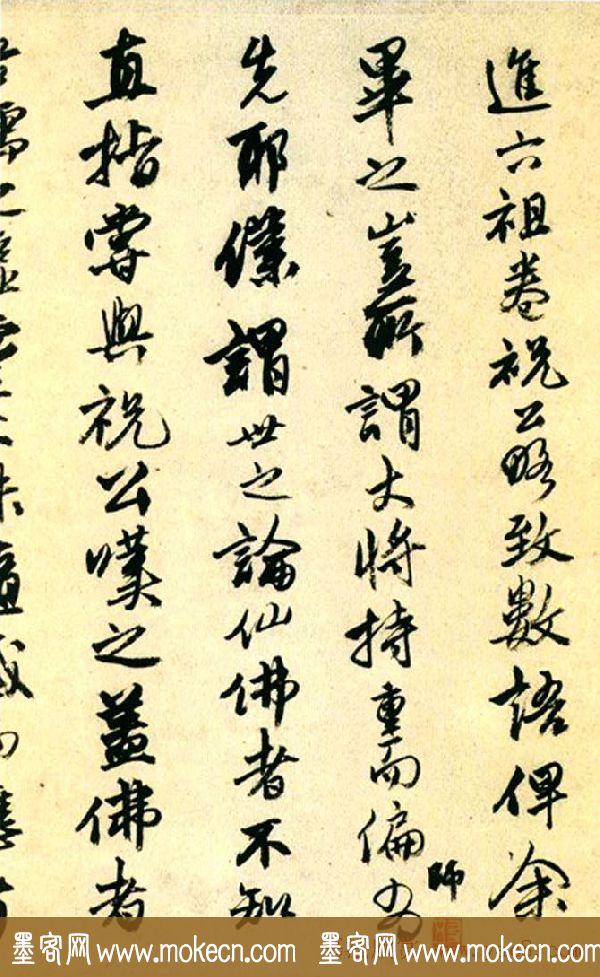 進六祖卷祝公略致數語俾余
畢之豈所謂大將持重而偏為
師
先耶僕謂世之論仙佛者不知
直指嘗與祝公嘆之蓋佛者
墨客网 www.mokecn.com 墨客网 www.mokecn.com